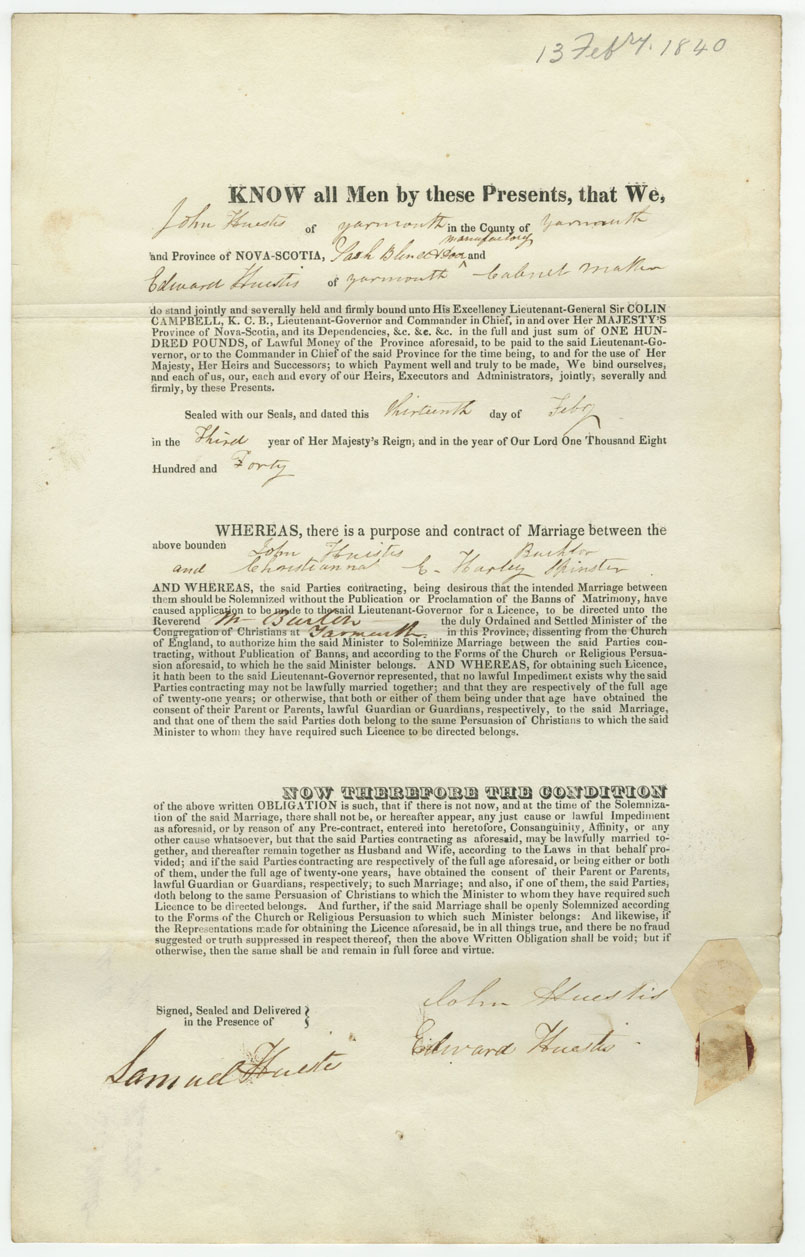 13 Feby. 1840
KNOW all Men by these Presents, that We,
John Huestis of yarmouth in the County of Yarmouth
manufactory
and Province of NOVA-SCOTIA, Sash Blind & Door ^ and
Edward Huestis of yarmouth Cabinet maker
do stand jointly and severally held and firmly bound unto His Excellency Lieutenant-General Sir COLIN
CAMPBELL, K. C. B., Lieutenant-Governor and Commander in Chief, in and over Her MAJESTY'S
Province of Nova-Scotia, and its Dependencies, &c. &c. &c. in the full and just sum of ONE HUN-
DRED POUNDS, of Lawful Money of the Province aforesaid, to be paid to the said Lieutenant-Go-
vernor, or to the Commander in Chief of the said Province for the time being, to and for the use of Her
Majesty, Her Heirs and Successors; to which Payment well and truly to be made, We bind ourselves,
and each of us, our, each and every of our Heirs, Executors and Administrators, jointly, severally and
firmly, by these Presents.
Sealed with our Seals, and dated this thirteenth day of Feby
in the Third year of Her Majesty's Reign, and in the year of Our Lord One Thousand Eight
Hundred and Forty
WHEREAS, there is a purpose and contract of Marriage between the
above bounden John Huestis Bachlor
and Christianna E. Harley Spinster
AND WHEREAS, the said Parties contracting, being desirous that the intended Marriage between
them should be Solemnized without the Publication or Proclamation of the Banns of Matrimony, have
caused application to be made to the said Lieutenant-Governor for a Licence, to be directed unto the
Reverend Mr Burton the duly Ordained and Settled Minister of the
Congregation of Christians at Yarmouth in this Province, dissenting from the Church
of England, to authorize him the said Minister to Solemnize Marriage between the said Parties con-
tracting, without Publication of Banns, and according to the Forms of the Church or Religious Persua-
sion aforesaid, to which he the said Minister belongs. AND WHEREAS, for obtaining such Licence,
it hath been to the said Lieutenant-Governor represented, that no lawful Impediment exists why the said
Parties contracting may not be lawfully married together; and that they are respectively of the full age
of twenty-one years; or otherwise, that both or either of them being under that age have obtained the
consent of their Parent or Parents, lawful Guardian or Guardians, respectively, to the said Marriage,
and that one of them the said Parties doth belong to the same Persuasion of Christians to which the said
Minister to whom they have required such Licence to be directed belongs.
NOW THEREFORE THE CONDITION
of the above written OBLIGATION is such, that if there is not now, and at the time of the Solemniza-
tion of the said Marriage, there shall not be, or hereafter appear, any just cause or lawful Impediment
as aforesaid, or by reason of any Pre-contract, entered into heretofore, Consanguinity, Affinity, or any
other cause whatsoever, but that the said Parties contracting as aforesaid, may be lawfully married to-
gether, and thereafter remain together as Husband and Wife, according to the Laws in that behalf pro-
vided; and if the said Parties contracting are respectively of the full age aforesaid, or being either or both
of them, under the full age of twenty-one years, have obtained the consent of their Parent or Parents,
lawful Guardian or Guardians, respectively, to such Marriage; and also, if one of them, the said Parties,
doth belong to the same Persuasion of Christians to which the Minister to whom they have required such
Licence to be directed belongs. And further, if the said Marriage shall be openly Solemnized according
to the Forms of the Church or Religious Persuasion to which such Minister belongs: And likewise, if
the Representations made for obtaining the Licence aforesaid, be in all things true, and there be no fraud
suggested or truth suppressed in respect thereof, then the above Written Obligation shall be void; but if
otherwise, then the same shall be and remain in full force and virtue.
John Huestis
Signed, Sealed and Delivered
in the Presence of
Edward Huestis
Samuel Huestis